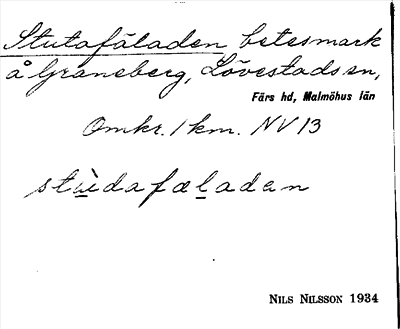 Stutafäladen betesmark
å Graneberg, Lövestads sn,
Färs hd, Malmöhus län
Omkr. 1 km. NV 13
stùdafæladen
NILS NILSSON 1934